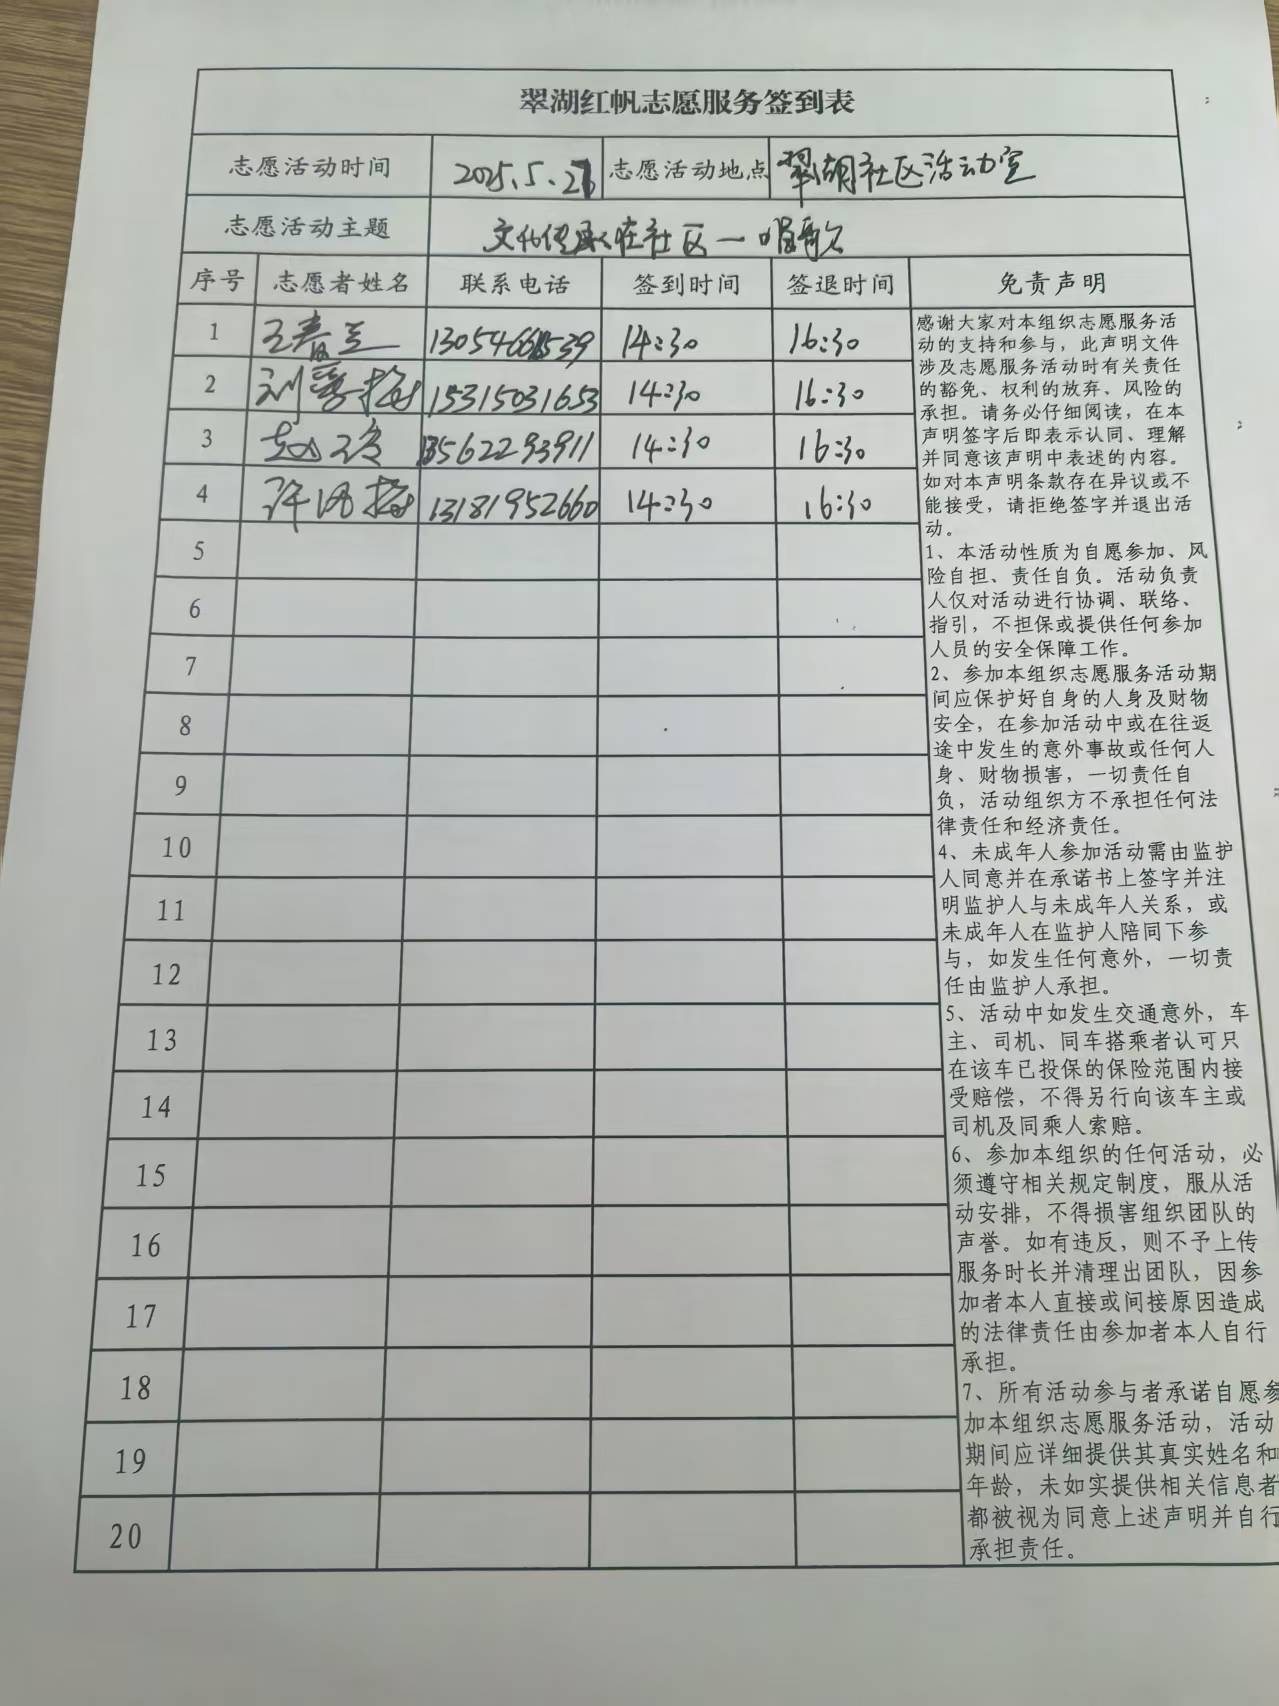 翠湖红帆志愿服务签到表
志愿活动时间 2025.5. 志愿活动地点 翠湖社区活动室
志愿活动主题 文化传承在社区一唱歌
序号 志愿者姓名 联系电话 签到时间 签退时间 免责声明
1 王春兰 14:30 16:30
2 刘 梅 15315031653 14:30 16:30
3 赵 13562293911 14:30 16:30
4 许 梅 13181952660 14:30 16:30
5
6
7
8
9
10
11
12
13
14
15
16
17
18
19
20
感谢大家对本组织志愿服务活
动的支持和参与，此声明文件
涉及志愿服务活动时有关责任
的豁免、权利的放弃、风险的
承担。请务必仔细阅读，在本
声明签字后即表示认同、理解
并同意该声明中表述的内容。
如对本声明条款存在异议或不
能接受，请拒绝签字并退出活
动。
1、本活动性质为自愿参加、风
险自担、责任自负。活动负责
人仅对活动进行协调、联络、
指引，不担保或提供任何参加
人员的安全保障工作。
2、参加本组织志愿服务活动期
间应保护好自身的人身及财物
安全，在参加活动中或在往返
途中发生的意外事故或任何人
身、财物损害，一切责任自
负，活动组织方不承担任何法
律责任和经济责任。
4、未成年人参加活动需由监护
人同意并在承诺书上签字并注
明监护人与未成年人关系，或
未成年人在监护人陪同下参
与，如发生任何意外，一切责
任由监护人承担。
5、活动中如发生交通意外，车
主、司机、同车搭乘者认可只
在该车已投保的保险范围内接
受赔偿，不得另行向该车主或
司机及同乘人索赔。
6、参加本组织的任何活动，必
须遵守相关规定制度，服从活
动安排，不得损害组织团队的
声誉。如有违反，则不予上传
服务时长并清理出团队，因参
加者本人直接或间接原因造成
的法律责任由参加者本人自行
承担。
7、所有活动参与者承诺自愿参
加本组织志愿服务活动，活动
期间应详细提供其真实姓名和
年龄，未如实提供相关信息者
都被视为同意上述声明并自行
承担责任。